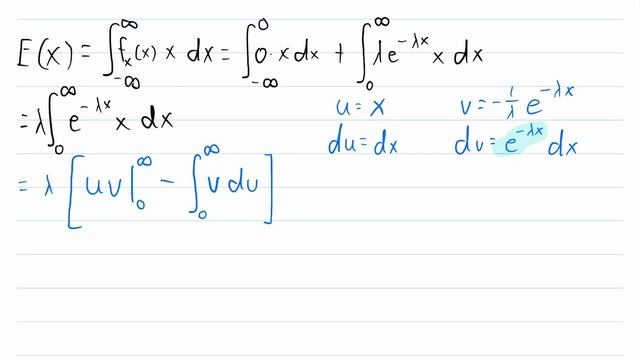 E(x) = ∫_{-∞}^{∞} f_x(x) x dx = ∫_{-∞}^{0} 0·x dx + ∫_{0}^{∞} λe^{-λx} x dx
= λ∫_{0}^{∞} e^{-λx} x dx
u = x v = -1/λ e^{-λx}
du = dx dv = e^{-λx} dx
= λ [uv|_{0}^{∞} - ∫_{0}^{∞} v du]